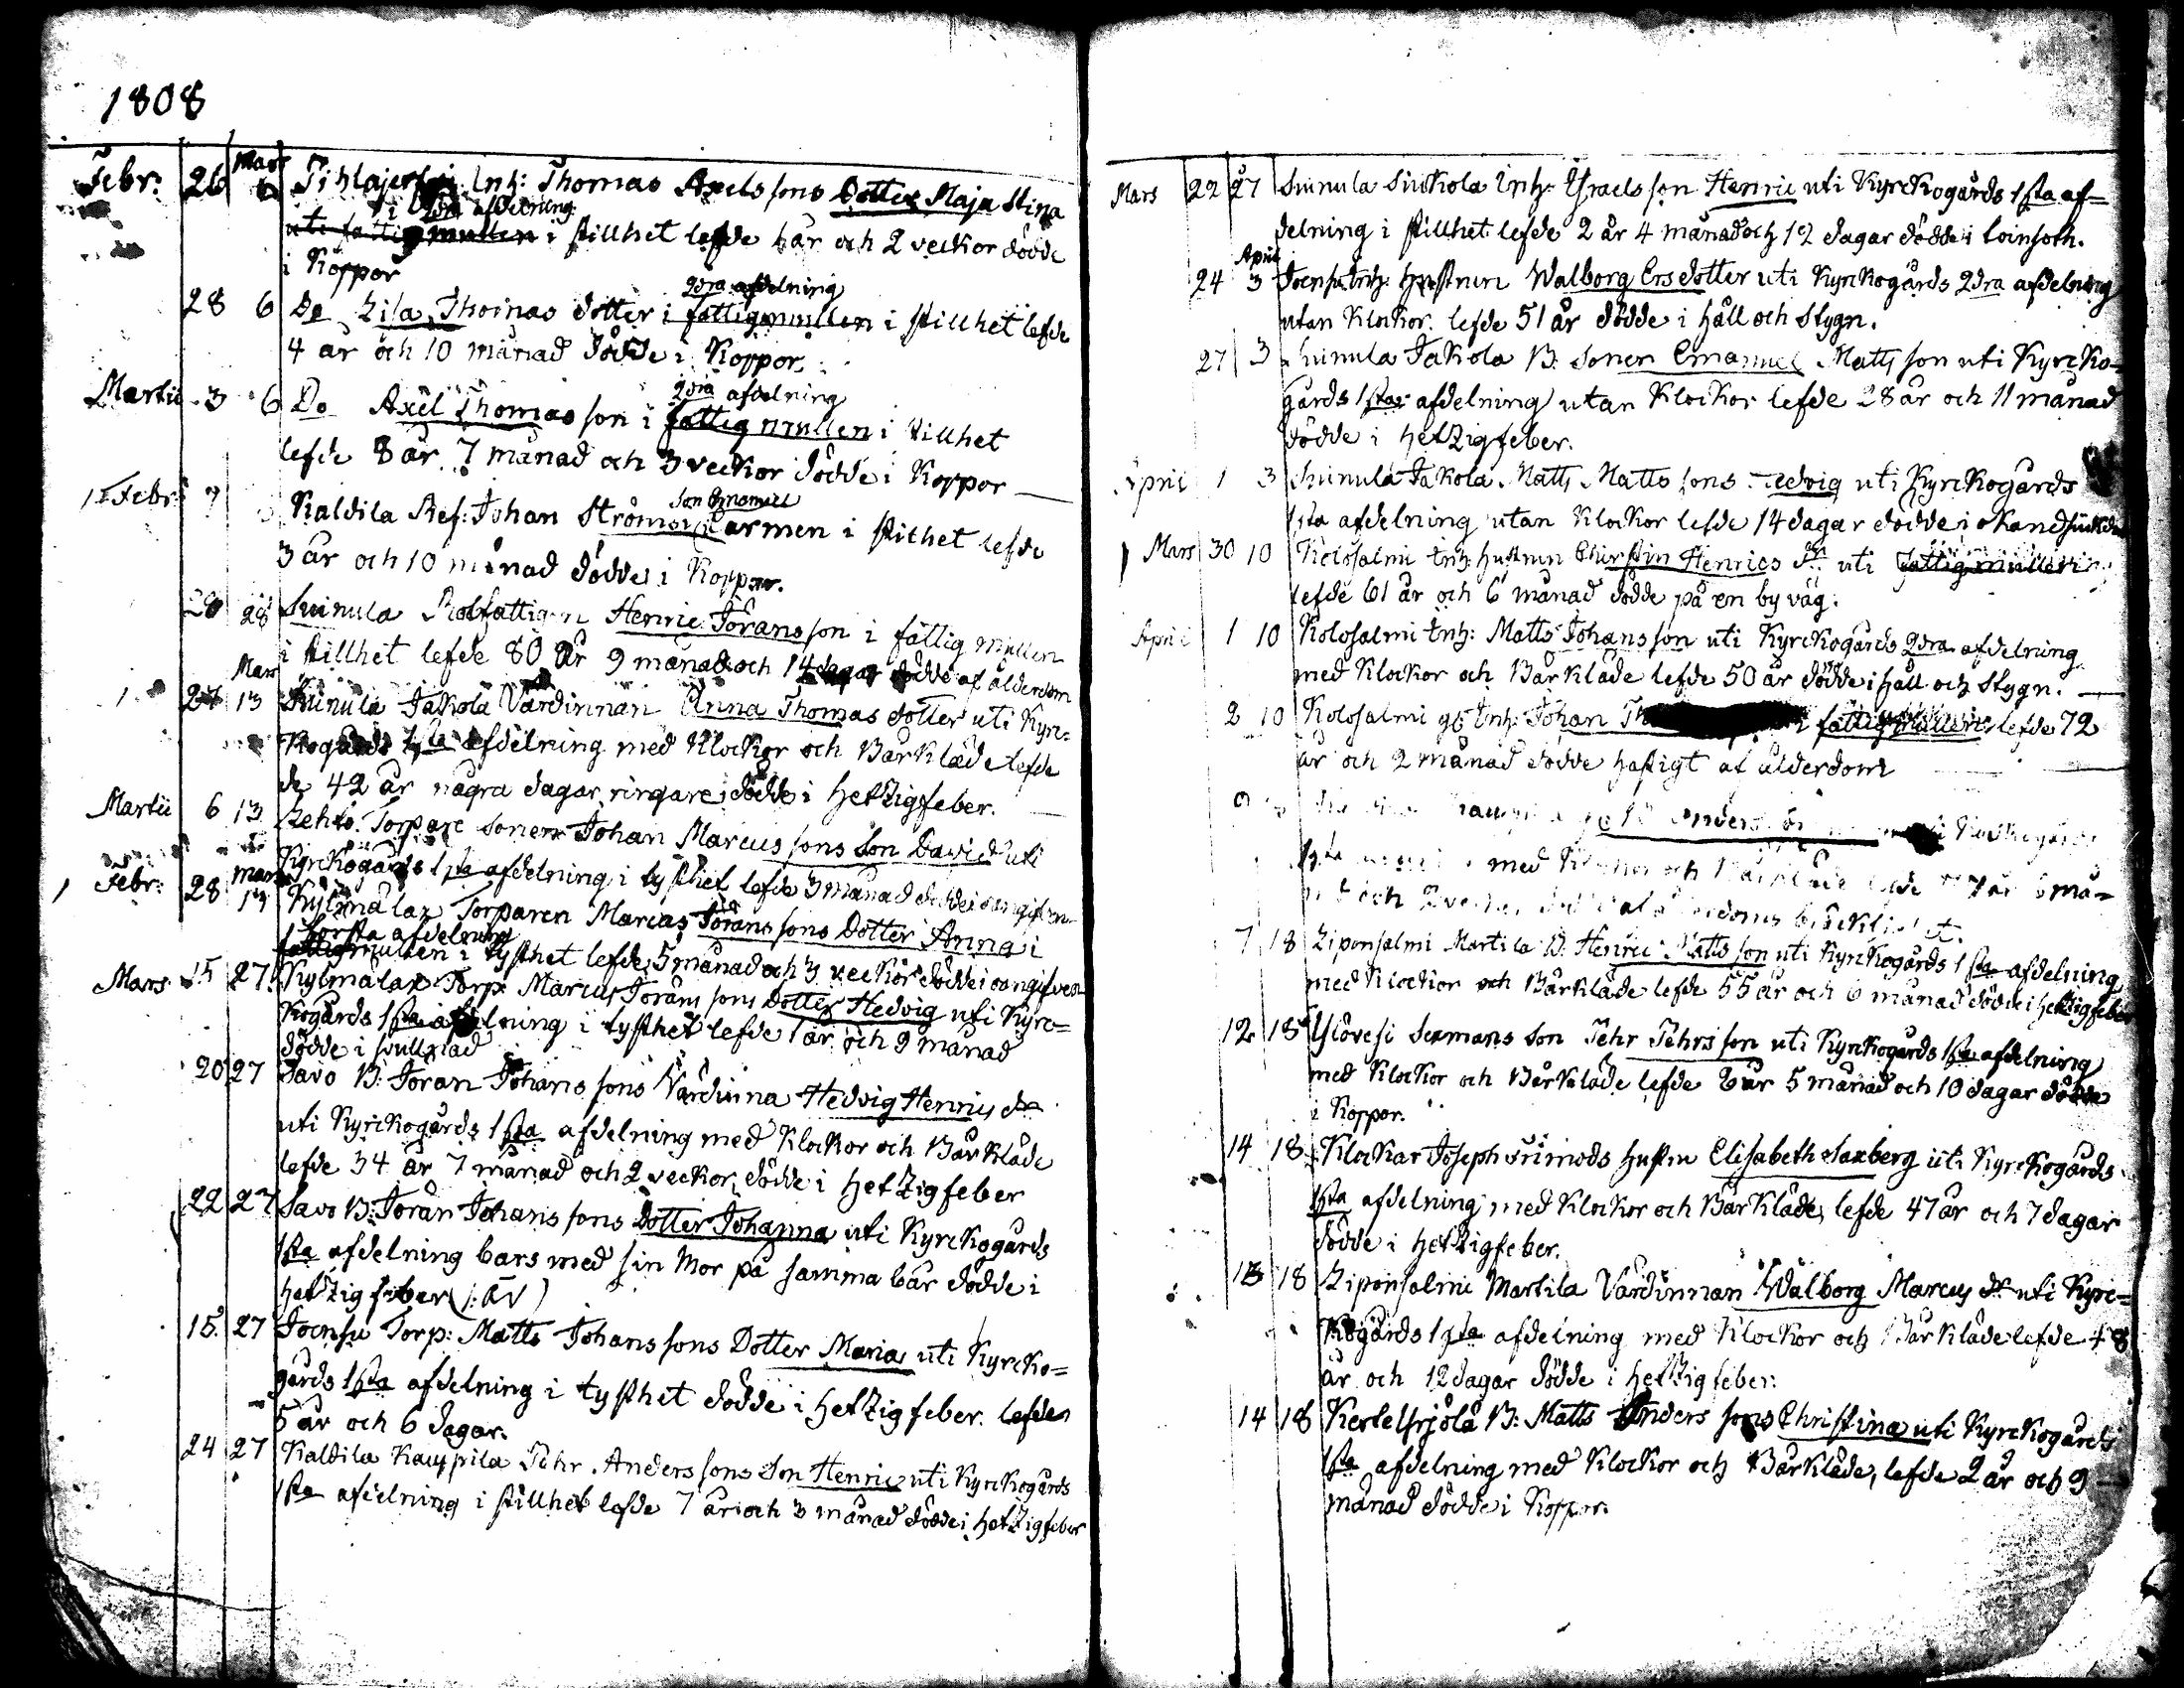 1808
Febr: 26 Mars 6 Inh: Thomas Axels sons Dotter Maja Stina
i 2dra afdelning
uti fattigmullen i stillhet lefde år och 2 veckor dödde
i Koppor
2dra afdelning
28 6 Do Lisa Thomas dotter i fattigmullen i stillhet lefde
4 år och 10 månad dödde i Koppor
2dra afdelning
Martii 3 6 Do Axel Thomas son i fattigmullen i stillhet
lefde 8 år 7 månad och 3 veckor dödde i Koppor
son Emanuel
Febr: 7 Kaldila Ref: Johan Ströms i armen i stilhet lefde
3 år och 10 månad dödde i Koppor.
20 28 Suinula Rotfattigen Henric Jörans son i fattig mullen
i stillhet lefde 80 år 9 månad och 14 dagar dödde af ålderdom
Mars
27 13 Suinula Jakola Värdinnan Anna Thomas dotter uti Kyrc-
kogårds 1sta afdelning med Klockor och Bårkläde lefde
de 42 år några dagar ringare, dödde i hetzigfeber.
Martii 6 13 Lehto Torpare sonen Johan Marcus sons Son David uti
Kyrckogårds 1sta afdelning i tysthet lefde 3 månad dödde i oangifven
Febr: 28 Mars 13 Kylmälax Torparen Marcus Jörans sons Dotter Anna i
första afdelning
fattigmullen i tysthet lefde 5 månad och 3 veckor dödde i oangifven
Mars 15 27 Kylmälax Torp: Marcus Jörans sons Dotter Hedvig uti Kyrc=
kogårds 1sta afdelning i tysthet lefde 1 år och 9 månad
dödde i svullnad
20 27 Savo B: Jöran Johans sons Värdinna Hedvig Henrics dr
uti Kyrckogårds 1sta afdelning med Klockor och Bårkläde
lefde 34 år 7 månad och 2 veckor, dödde i hetzigfeber
22 27 Savo B: Jöran Johans sons Dotter Johanna uti Kyrckogårds
1sta afdelning bars med sin Mor på samma bår dödde i
hetzigfeber
15. 27 Joensu Torp: Matts Johans sons Dotter Maria uti Kyrcko=
gårds 1sta afdelning i tysthet dödde i hetzigfeber. lefde
5 år och 6 dagar.
24 27 Kaldila Kauppila Pehr Anders sons Son Henric uti Kyrckogårds
1sta afdelning i stillhet lefde 7 år och 3 månad dödde i hetzigfeber
Mars 22 27 Suinula Sinkola Inh: Israels son Henric uti Kyrckogårds 1sta af=
delning i stillhet lefde 2 år 4 månad och 12 dagar dödde i
April
24 3 Joensu Inh: hustrun Walborg Ers dotter uti Kyrckogårds 2dra afdelning
utan Klockor. lefde 51 år dödde i håll och stygn.
27 3 Suinula Jakola B. Sonen Emanuel Matts son uti Kyrcko=
gårds 1sta afdelning utan Klockor lefde 28 år och 11 månad
dödde i hetzigfeber.
April 1 3 Suinula Jakola Matts Matts sons Hedvig uti Kyrckogårds
1sta afdelning utan Klockor lefde 14 dagar dödde i okänd siukdom
Mars 30 10 Kolosalmi Inh: hustrun Christin Henrics dr uti fattigmullen
lefde 61 år och 6 månad dödde på en by väg.
April 1 10 Kolosalmi Inh: Matts Johans son uti Kyrckogårds 2dra afdelning
med Klockor och Bårkläde lefde 50 år dödde i håll och stygn.
2 10 Kolosalmi gl: Inh: Johan i fattigmullen lefde 72
år och 2 månad dödde hastigt af ålderdom
Anders
med och lefde år 6 må=
nad och
7 18 Liponsalmi Martila B. Henric Matts son uti Kyrckogårds 1sta afdelning
med Klockor och Bårkläde lefde 55 år och 6 månad dödde i hetzigfeber
12 18 Ylövesi Sexmans Son Pehr Pehrs son uti Kyrckogårds 1sta afdelning
med Klockor och Bårkläde lefde 8 år 5 månad och 10 dagar dödde
i Koppor.
14 18 Klockar Joseph hustru Elisabeth Saxberg uti Kyrckogårds
1sta afdelning med Klockor och Bårkläde, lefde 47 år och 7 dagar
dödde i hetzigfeber.
13 18 Liponsalmi Martila Värdinnan Walborg Marcus dr uti Kyrc=
kogårds 1sta afdelning med Klockor och Bårkläde lefde 48
år och 12 dagar dödde i hetzigfeber:
14 18 B: Matts Anders sons Christina uti Kyrckogårds
1sta afdelning med Klockor och Bårkläde, lefde 2 år och 9
månad dödde i Koppor.